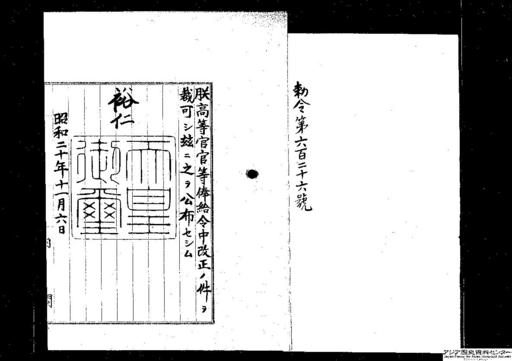 勅令第六百二十六號
朕高等官官等俸給令中改正ノ件ヲ
裁可シ玆ニ之ヲ公布セシム
裕仁
天皇
御璽
昭和二十年十一月六日
アジア歴史資料センター